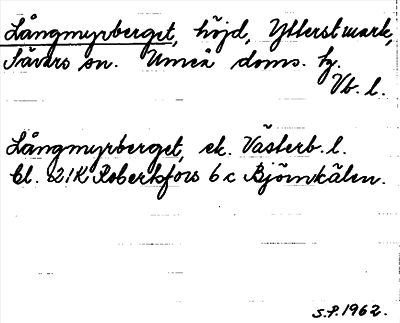 Långmyrberget, höjd, Ytterstmark,
Sävars sn. Umeå doms. hg.
Vb. l.
Långmyrberget, ek. Västerb. l.
bl. 21K Robertsfors 6 c Björnkälen.
S.P. 1962.